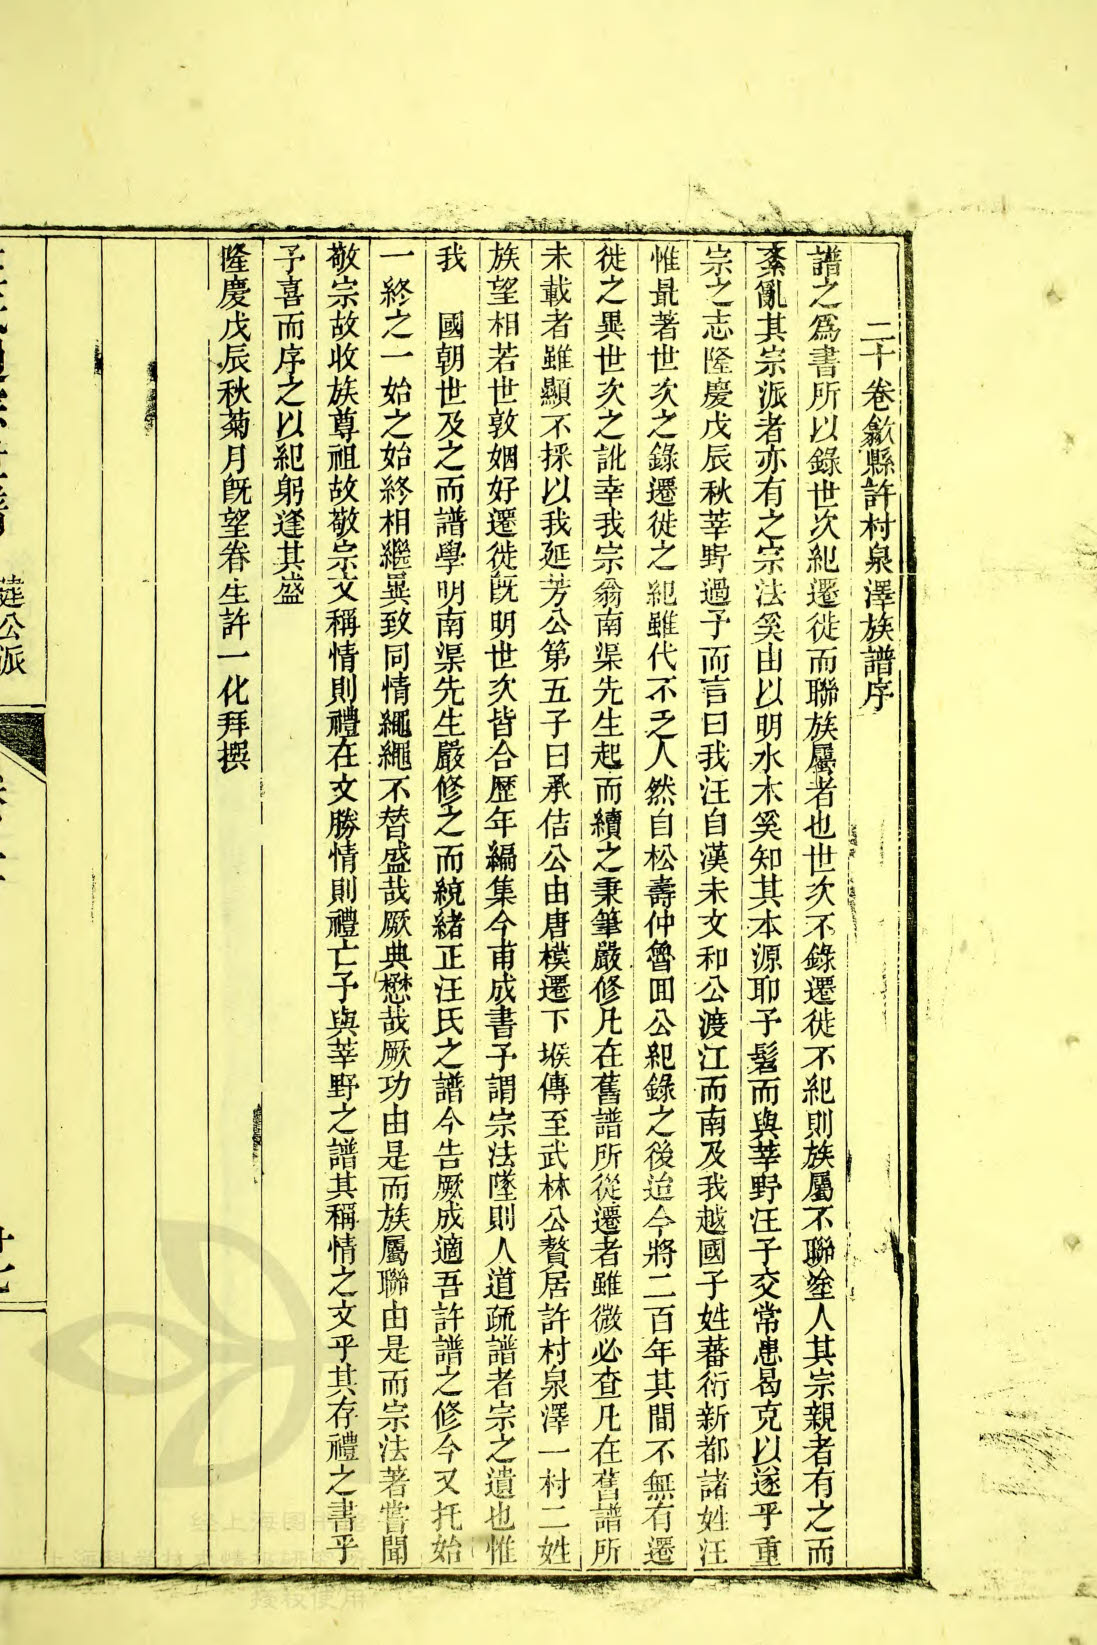 二十卷歙縣許村泉澤族譜序
譜之爲書所以錄世次紀遷徙而聯族屬者也世次不錄遷徙不紀則族屬不聯塗人其宗親者有之而
紊亂其宗派者亦有之宗法奚由以明水木奚知其本源耶予髫而與莘野汪子交常患曷克以遂乎重
宗之志隆慶戊辰秋莘野過予而言曰我汪自漢末文和公渡江而南及我越國子姓蕃衍新都諸姓汪
惟最著世次之錄遷徙之紀雖代不乏人然自松壽仲魯囬公紀錄之後迨今將二百年其間不無有遷
徙之異世次之訛幸我宗翁南渠先生起而續之秉筆嚴修凡在舊譜所從遷者雖微必查凡在舊譜所
未載者雖顯不採以我延芳公第五子曰承佶公由唐模遷下堠傳至武林公贅居許村泉澤一村二姓
族望相若世敦姻好遷徙旣明世次皆合歷年編集今甫成書予謂宗法墜則人道疏譜者宗之遺也惟
我　國朝世及之而譜學明南渠先生嚴修之而統緒正汪氏之譜今告厥成適吾許譜之修今又托始
一終之一始之始終相繼異致同情繩繩不替盛哉厥典懋哉厥功由是而族屬聯由是而宗法著嘗聞
敬宗故收族尊祖故敬宗文稱情則禮在文勝情則禮亡予與莘野之譜其稱情之文乎其存禮之書乎
予喜而序之以紀躬逢其盛
隆慶戊辰秋菊月旣望眷生許一化拜撰
廷公派